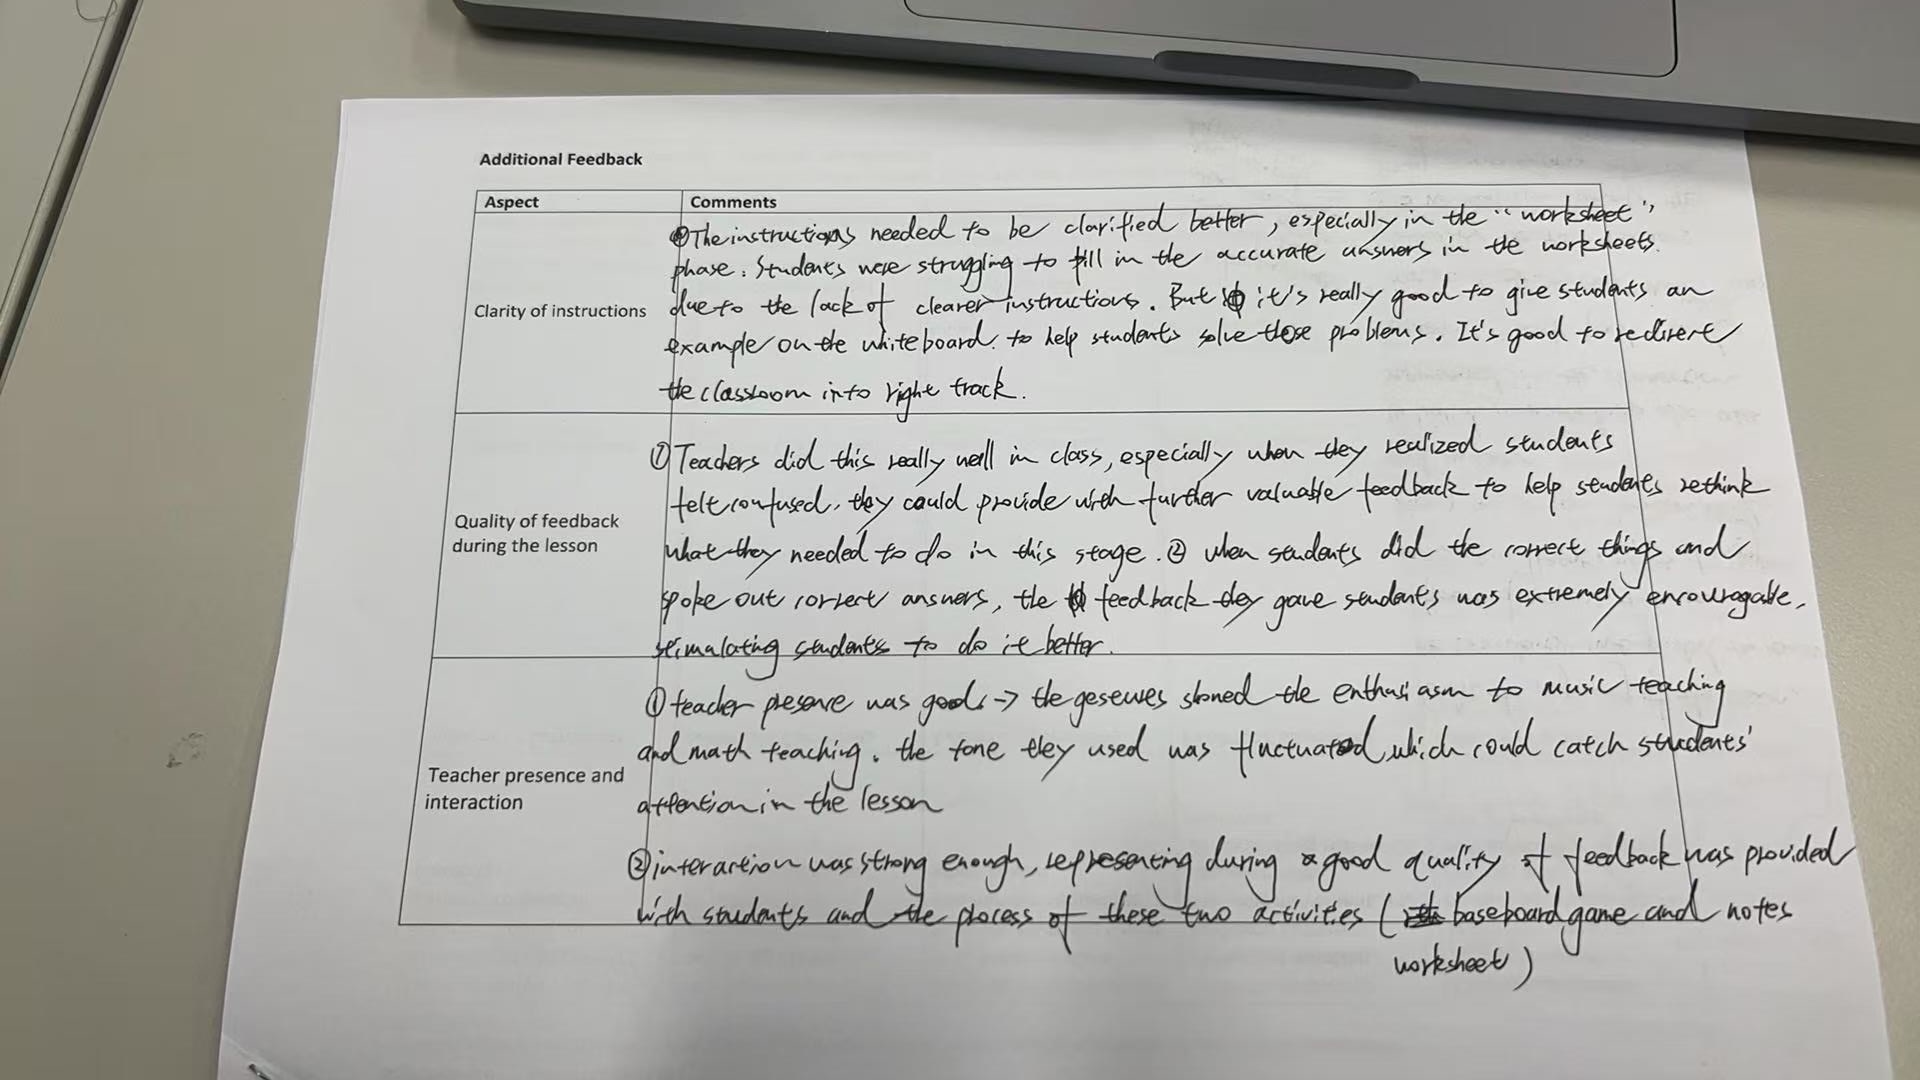 Additional Feedback
Aspect
Comments
Clarity of instructions
①The instructions needed to be clarified better, especially in the "worksheet"
phase. Students were struggling to fill in the accurate answers in the worksheets
due to the lack of clearer instructions. But it's really good to give students an
example on the whiteboard. to help students solve those problems. It's good to redirect
the classroom into right track.
Quality of feedback
during the lesson
① Teachers did this really well in class, especially when they realized students
felt confused, they could provide with further valuable feedback to help students rethink
what they needed to do in this stage. ② when students did the correct things and
spoke out correct answers, the feedback they gave students was extremely encouragable,
stimulating students to do it better.
Teacher presence and
interaction
① teacher presence was good. → the gestures showed the enthusiasm to music teaching
and math teaching. the tone they used was fluctuated, which could catch students'
attention in the lesson
② interaction was strong enough, representing during a good quality of feedback was provided
with students and the process of these two activities ( baseboard game and notes
worksheet )